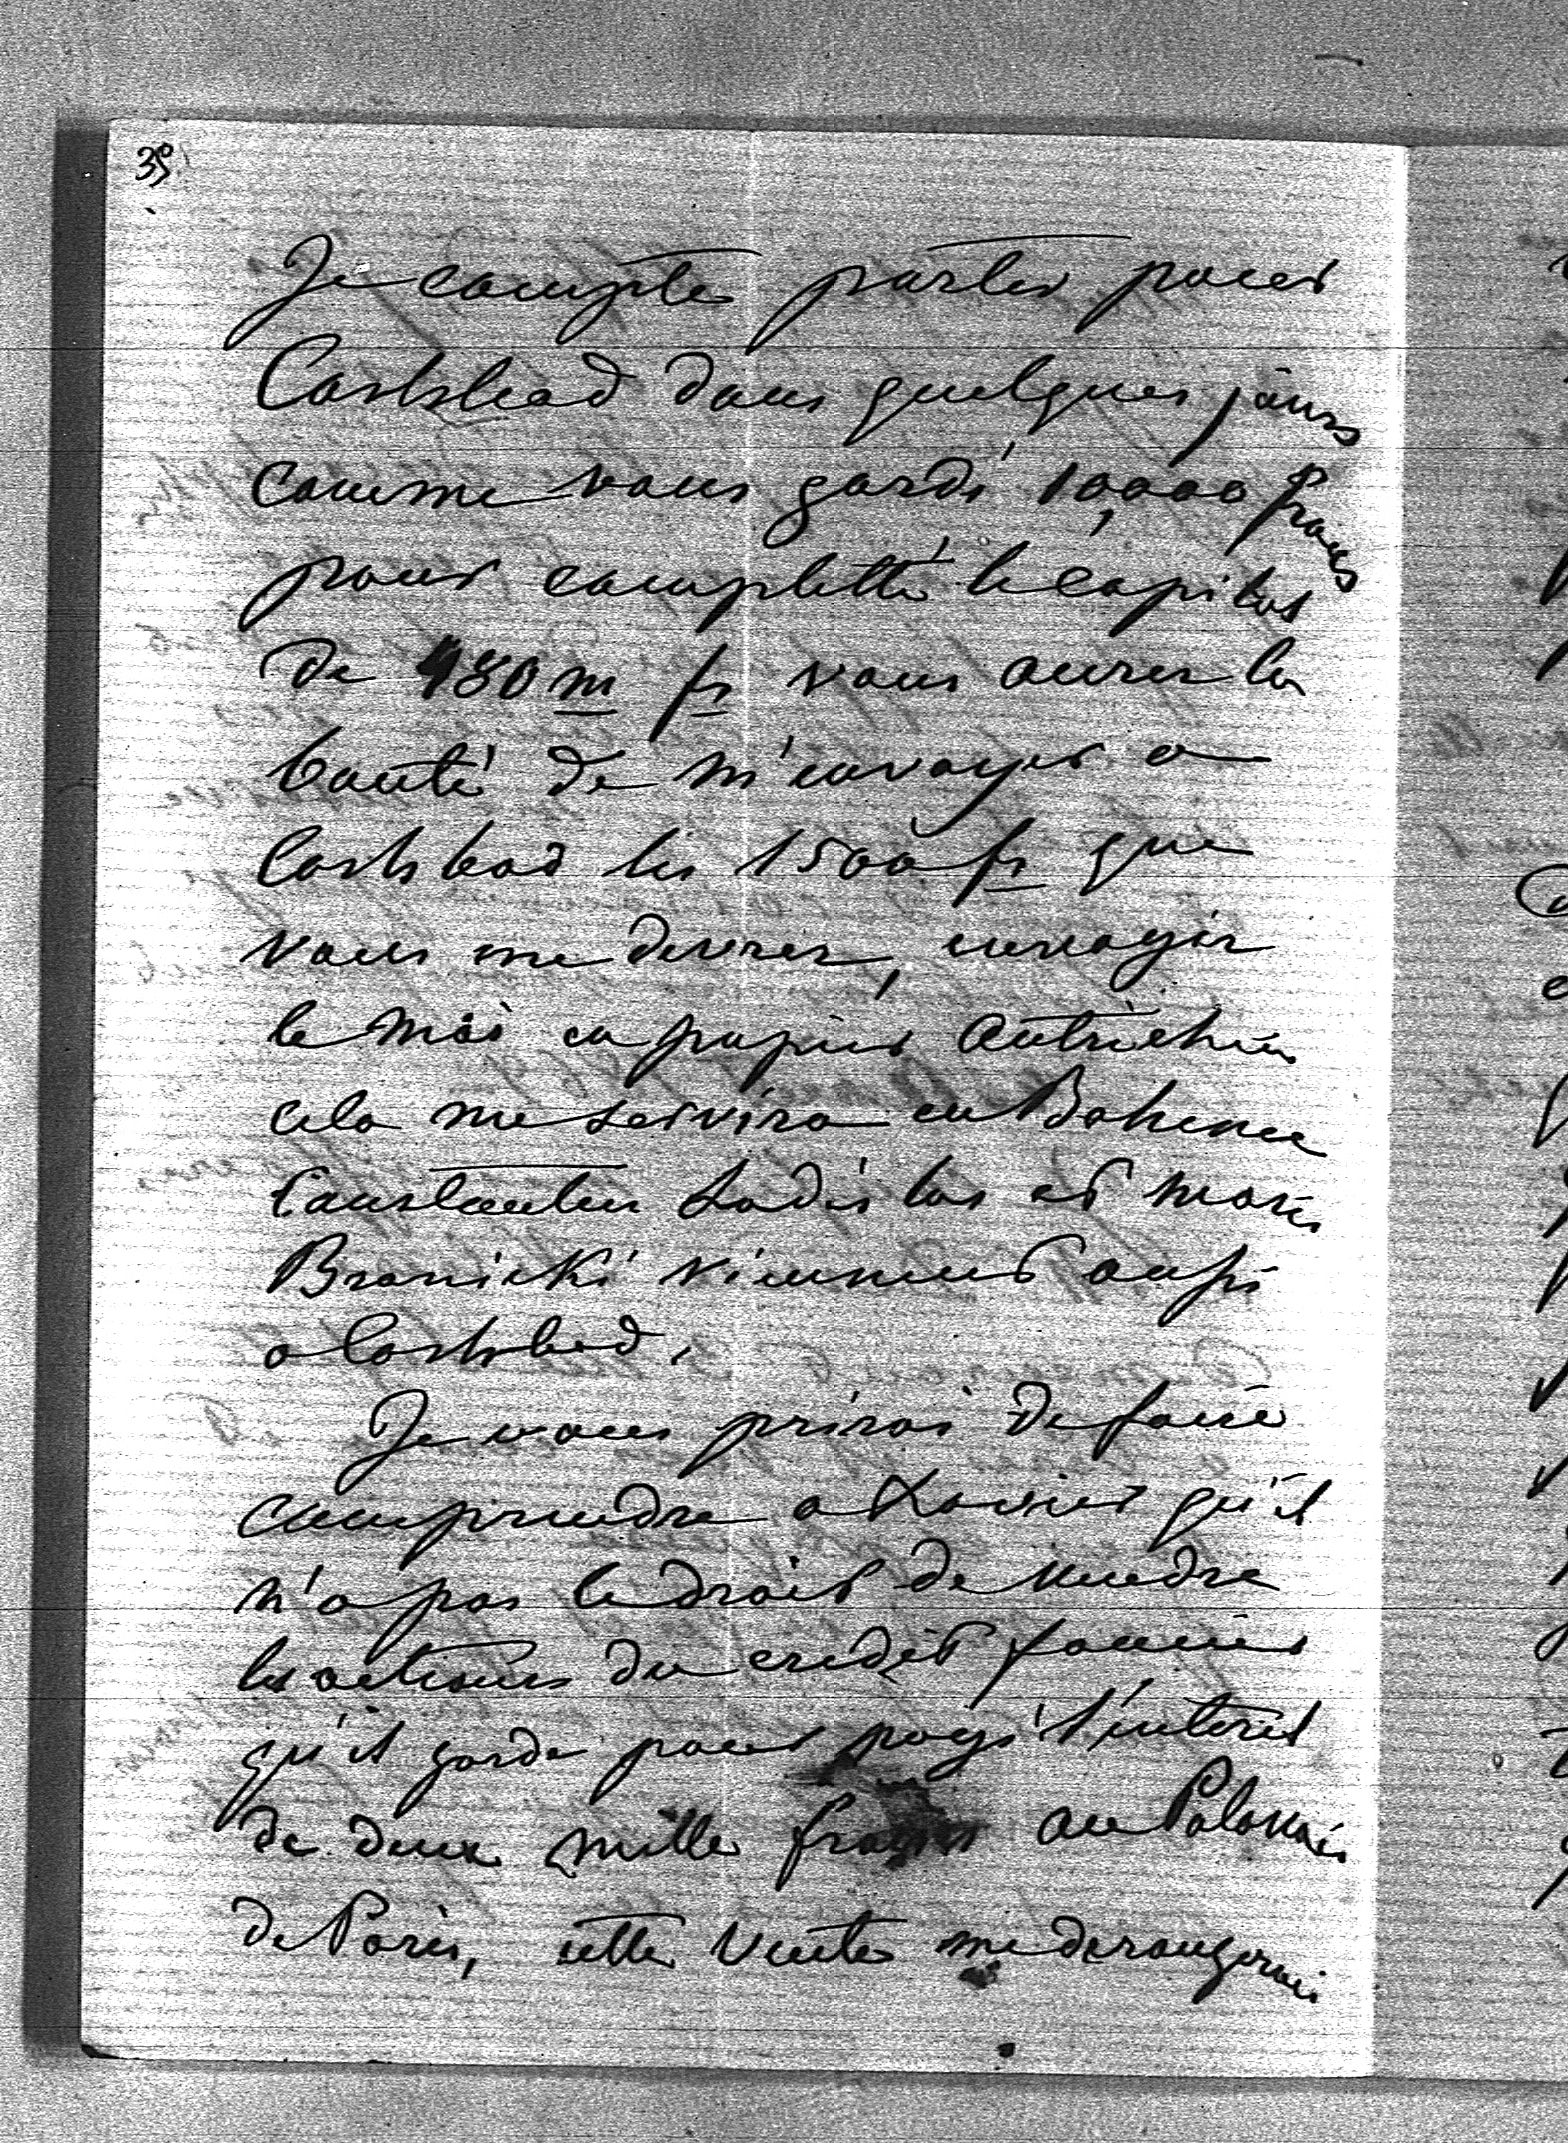 39
Je compte partir pour
Carlsbad dans quelques jours
comme vous gardé 10,000 francs
pour complétté le capital
de 480 m fr vous aurez la
bonté de m'envoyer a
Carlsbad les 1500 fr que
vous me devrez, envoyez
le moi en papier autrichien
cela me servira en Boheme
Constantin Ladislas et Marie
Branicki viennent aussi
a Carlsbad.
Je vous prirai de faire
comprendre a Xavier qu'il
n'a pas le droit de vendre
les actions du credit foncier
qu'il garde pour payé l'interet
de deux mille francs au Polonais
de Paris, cette vente me derangerai